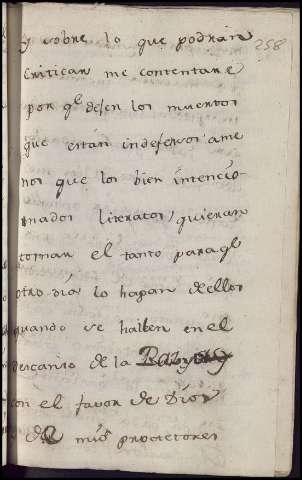 y sobre lo que podrán 258
Criticar me contentare
por ql desen los muertos
que están indefensos ame
nos que los bien intencio-
nados literatos, quieran
tomar el tanto paraql
otro dia lo hagan dellos
quando se hallen en el
descanso de la
con el favor de Dios
de mis protectores